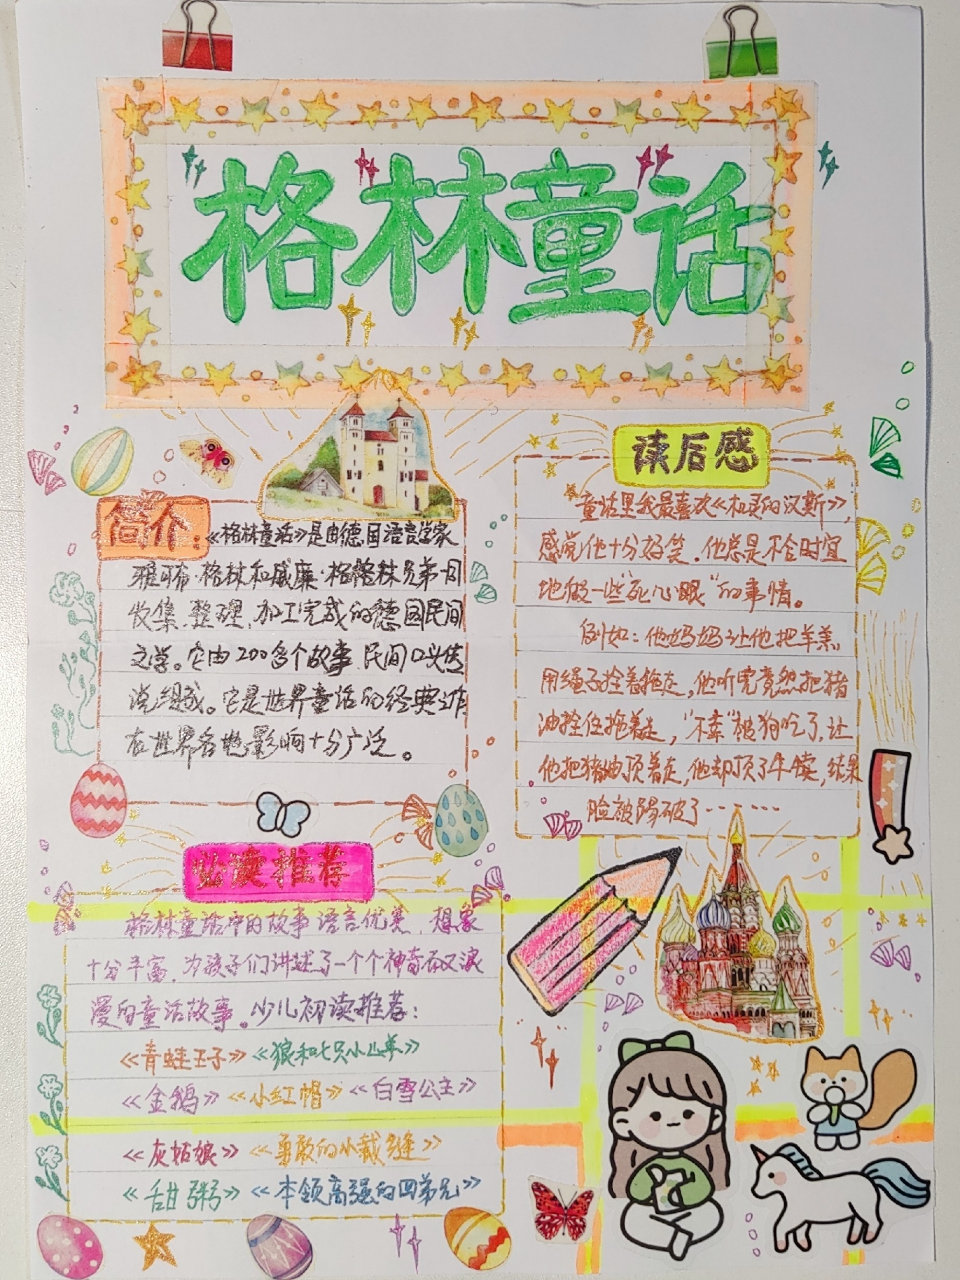 格林童话
简介:
《格林童话》是由德国语言学家
雅可布·格林和威廉·格林兄弟
收集、整理、加工完成的德国民间
文学。它由200多个故事、民间口头传
说组成。它是世界童话的经典之作
在世界各地影响十分广泛。
读后感
童话里我最喜欢《机灵的汉斯》,
感觉他十分好笑。他总是不合时宜
地做一些"死心眼"的事情。
例如:他妈妈让他把羊羔
用绳子拴着拖走,他听完竟然把猪
油拴住拖着走,"不幸"被狗吃了,让
他把猪油顶着走,他却顶了牛犊,结果
脸被踢破了………
必读推荐
格林童话中的故事语言优美、想象
十分丰富,为孩子们讲述了一个个神奇而又浪
漫的童话故事。少儿初读推荐:
《青蛙王子》《狼和七只小山羊》
《金鹅》《小红帽》《白雪公主》
《灰姑娘》《勇敢的小裁缝》
《甜粥》《本领高强的四弟兄》